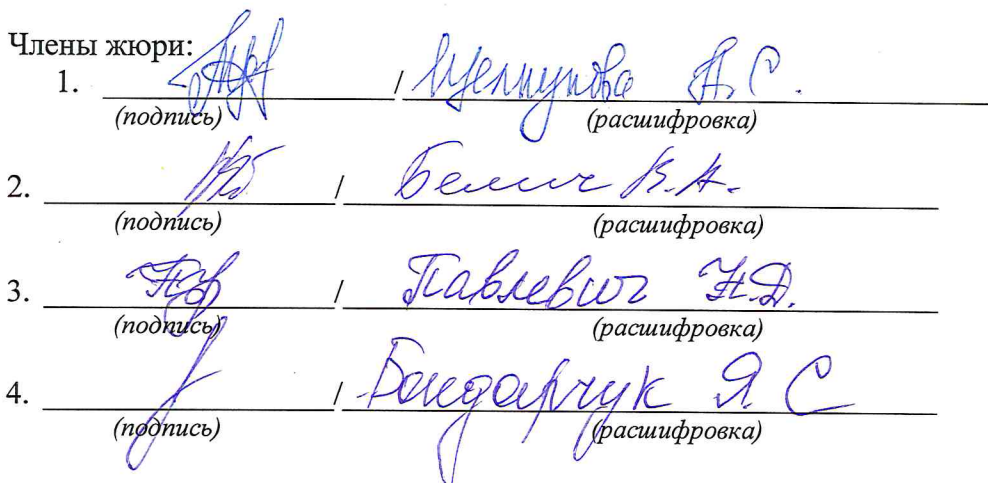 Члены жюри:
1. / А.С.
(подпись) (расшифровка)
2. / Белич В.А.
(подпись) (расшифровка)
3. / Павлевич Н.Д.
(подпись) (расшифровка)
4. / Бондарчук Я. С
(подпись) (расшифровка)